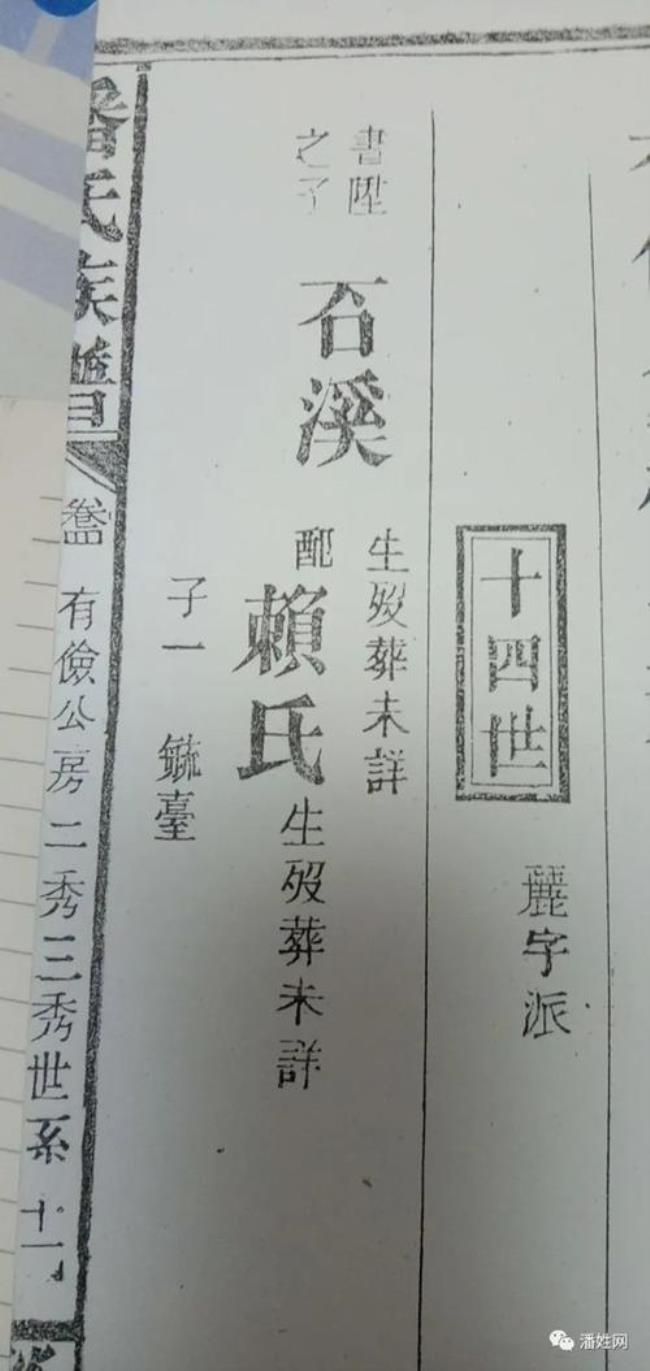 十四世
麗字派
書陞
之子
石溪
生歿葬未詳
配賴氏生歿葬未詳
子一 毓臺
潘氏族譜
有儉公房二秀三秀世系 十一
潘姓网